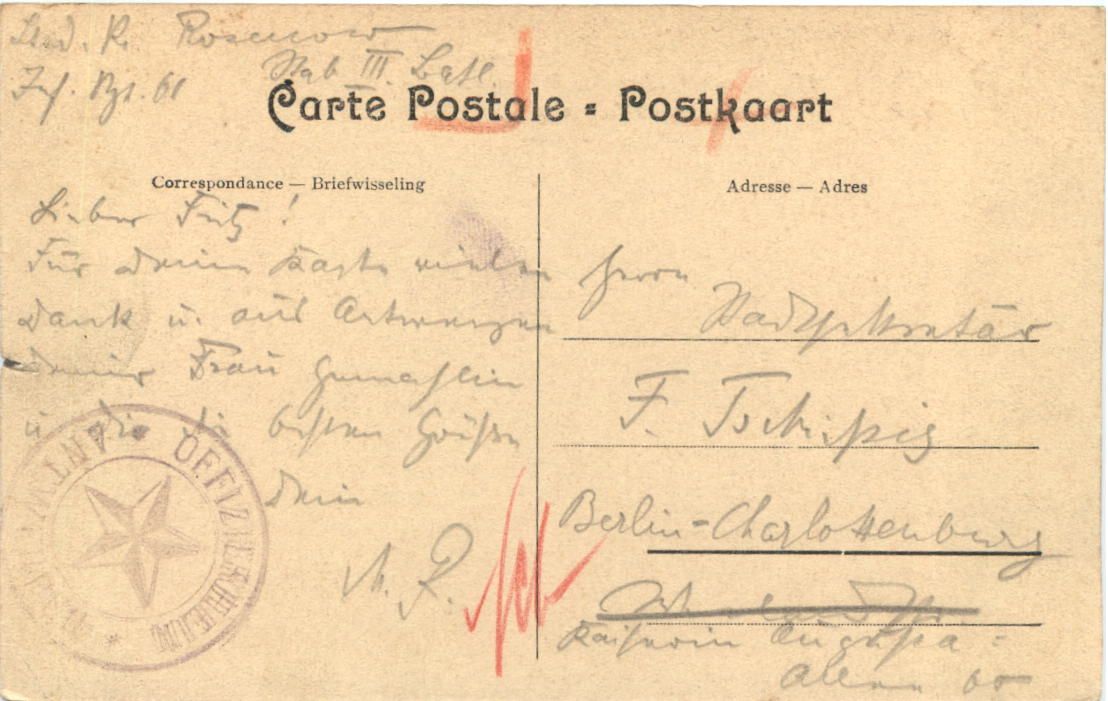 Rosenow
Stab III. Batl.
Inf. Rgt. 61
Carte Postale = Postkaart
Correspondance — Briefwisseling
Adresse — Adres
Lieber Fritz!
Für Deine Karte vielen
Dank u. aus Antwerpen
Deiner Frau Gemahlin
u. Dir die besten Grüße
Dein
R.
Herrn
Stadtsekretär
F.
Berlin-Charlottenburg
Kaiserin Augusta-
Allee
OFFIZIERSHEIM * ANTWERPEN